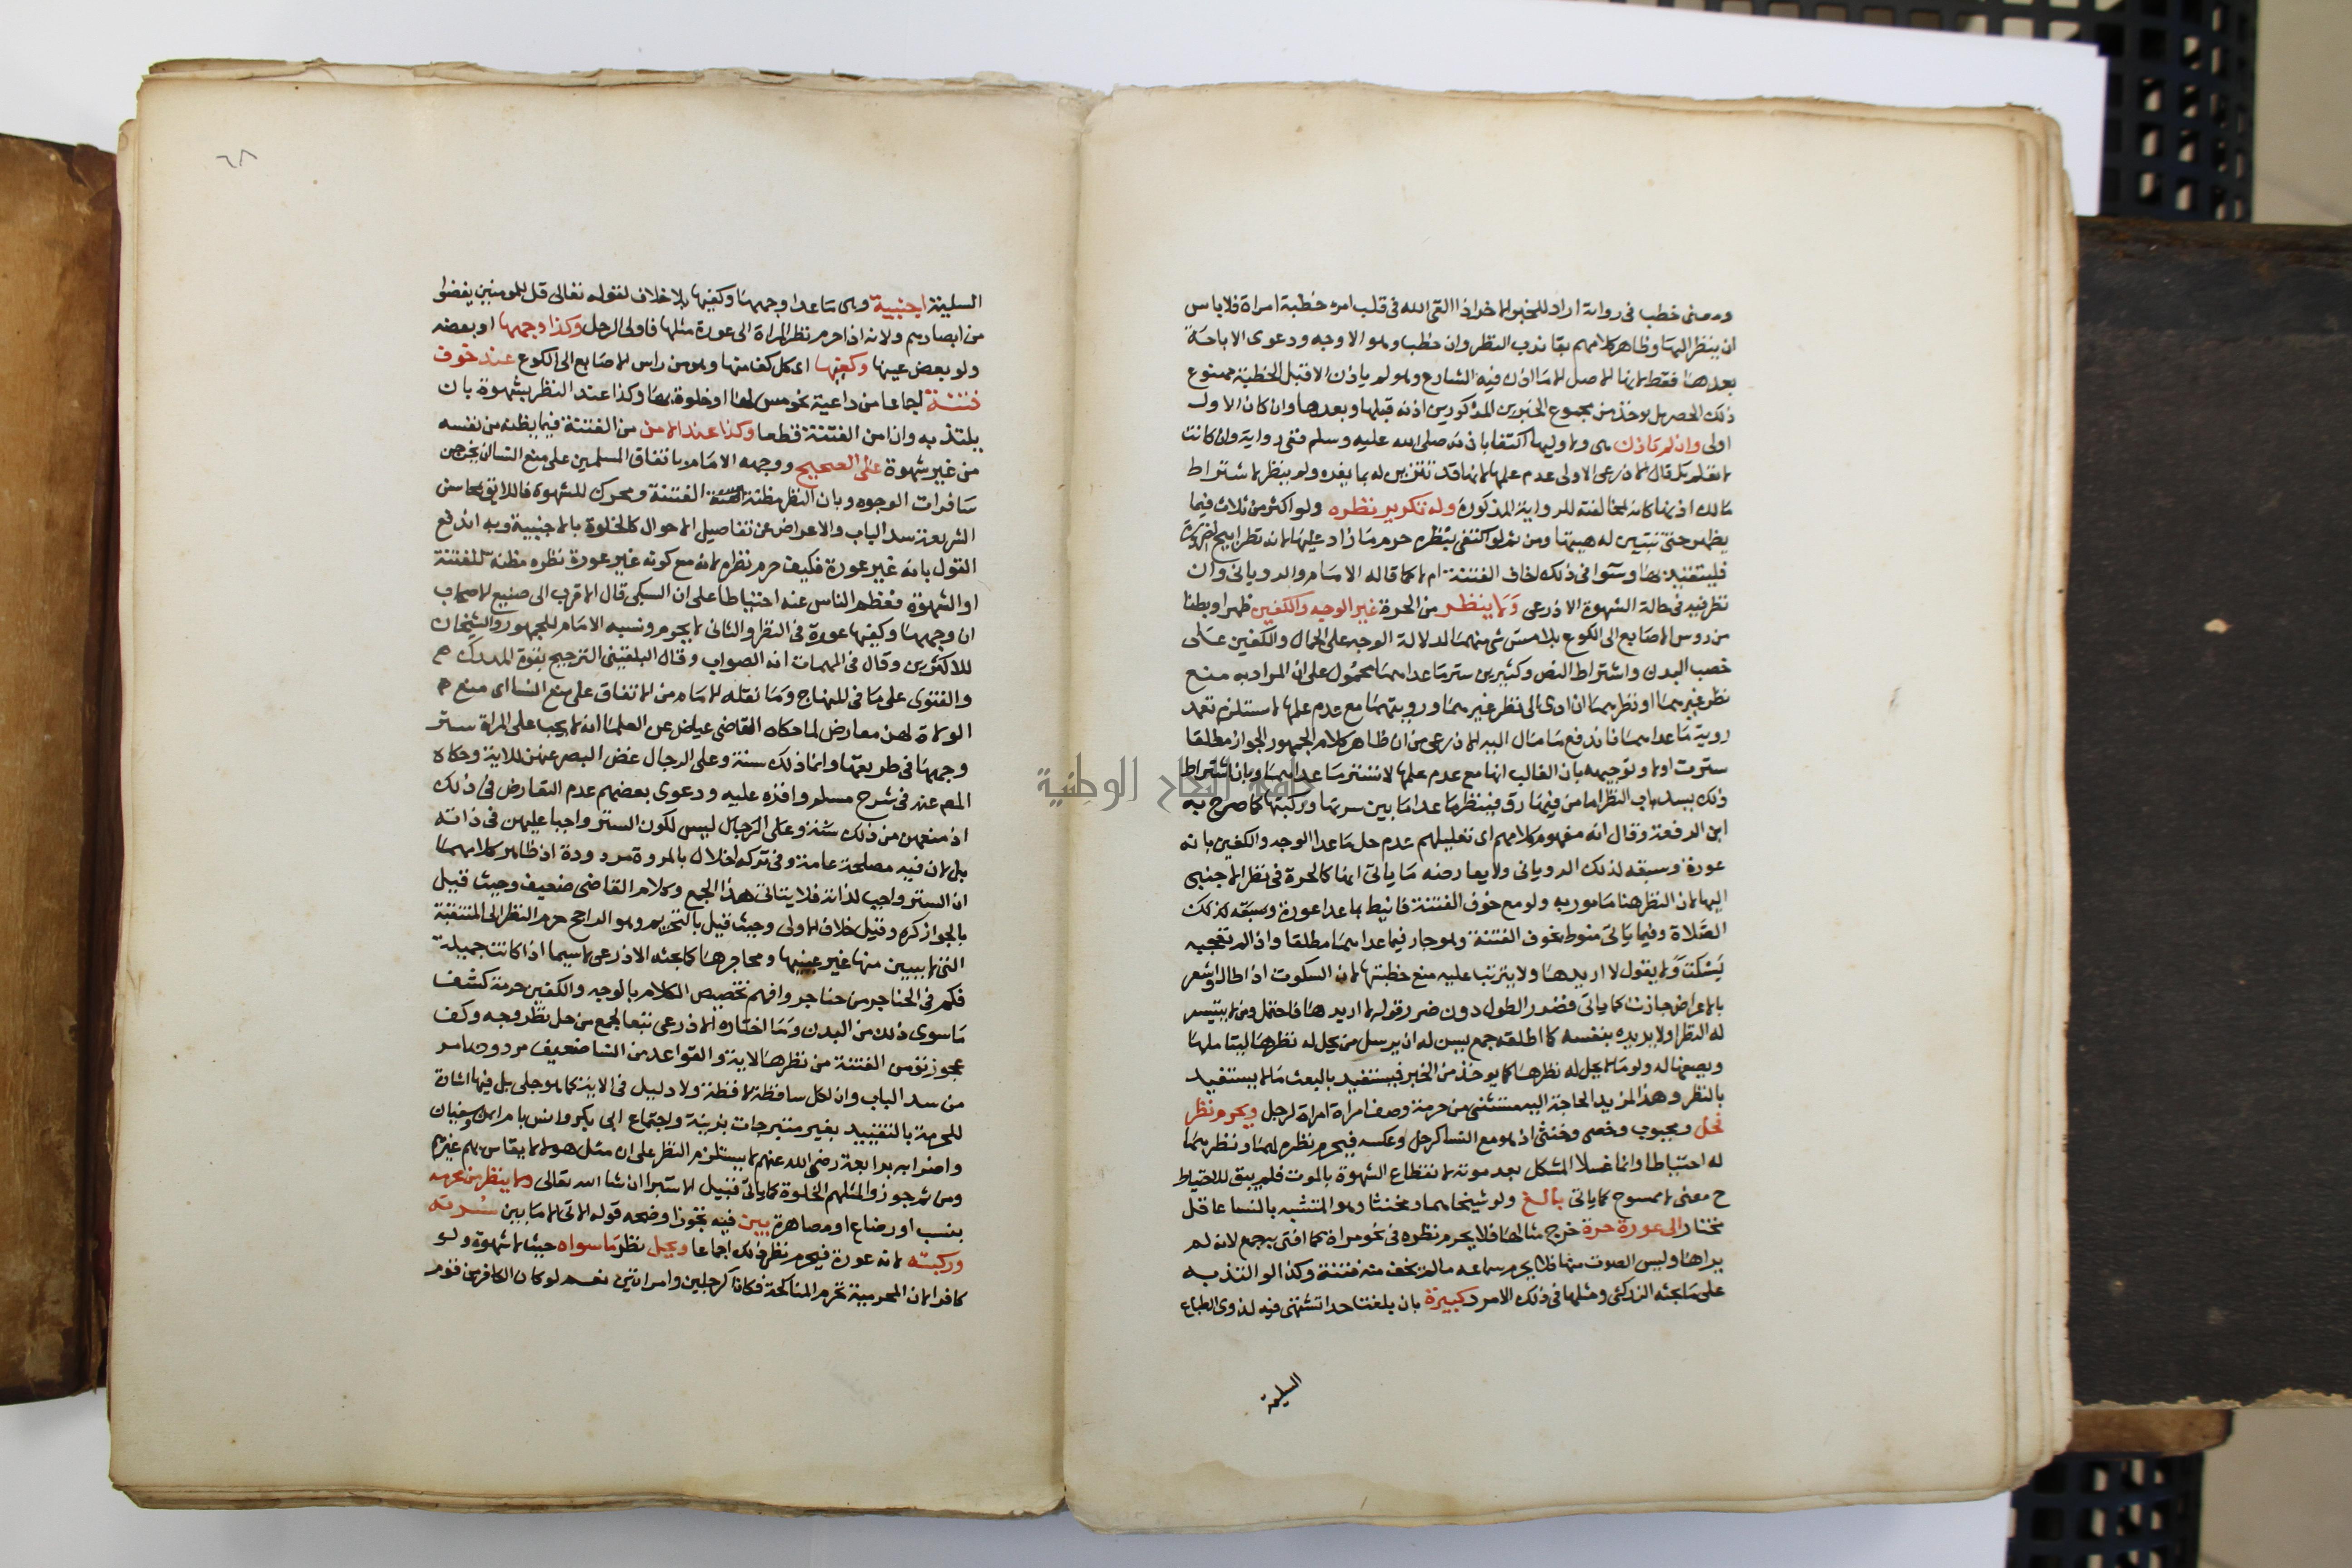 ومعنى خطب في رواية اراد للخبر الاخر اذا القى الله في قلب امرء خطبة امراة فلا باس
ان ينظر اليها وظاهر كلامهم بقا ندب النظر وان خطب وهو الاوجه ودعوى الاباحة
بعدها فقط لانها الاصل الا ما اذن فيه الشارع وهو لم ياذن الا قبل الخطبة ممنوع
ذلك الحصر بل يوخذ من مجموع الخبرين المذكورين اذنه قبلها وبعدها وان كان الاول
اولى وان لم تاذن هي ولا وليها اكتفا باذنه صلى الله عليه وسلم ففي رواية وان كانت
لا تعلم بل قال الاذرعي الاولى عدم علمها لانها قد تتزين له بما يغره ولم ينظر لاشتراط
مالك اذنها كانه لمخالفته للرواية المذكورة وله تكرير نظره ولو اكثر من ثلاث فيما
يظهر حتى تتبين له هيئتها ومن ثم لو اكتفى بنظره حرم ما زاد عليها لانه نظر ابيح لضرورة
فليتقيد بها وسوا في ذلك اخاف الفتنة ام لا كما قاله الامام والروياني وان
نظر فيه في حالة الشهوة الاذرعي ولا ينظر من الحرة غير الوجه والكفين ظهرا وبطنا
من روس الاصابع الى الكوع بلا مس شي منهما لدلالة الوجه على الجمال والكفين على
خصب البدن واشتراط النص وكثيرين ستر ما عداهما محمول على ان المراد به منع
نظر غيرهما او نظرهما ان ادى الى نظر غيرهما ورويتهما مع عدم علمها لا يستلزم تعمد
روية ما عداهما فاندفع ما مال اليه الاذرعي من ان ظاهر كلام الجمهور الجواز مطلقا
سترت اولا وتوجيهه بان الغالب انها مع عدم علمها لا تستر ما عداهما وبان اشتراط
ذلك يسد باب النظر اما من فيها رق فينظر ما عدا ما بين سرتها وركبتها كما صرح به
ابن الرفعة وقال انه مفهوم كلامهم اي تعليلهم عدم حل ما عدا الوجه والكفين بانه
عورة وسبقه لذلك الروياني ولا يعارضه ما ياتي انها كالحرة في نظر الاجنبي
اليها لان النظر هنا مامور به ولو مع خوف الفتنة فانيط بما عدا عورة وسبقه لذلك
الصلاة وفيما ياتي منوط بخوف الفتنة وهو جار فيما عداهما مطلقا واذا لم تعجبه
يسكت ولا يقول لا اريدها ولا يترتب عليه منع خطبتها لان السكوت اذا طال واشعر
بالاعراض جازت كما ياتي فضرر الطول دون ضرر قوله لا اريدها فاحتمل ومن لا يتيسر
له النظر او لا يريده بنفسه كما اطلقه جمع يسن له ان يرسل من يحل له نظرها ليتاملها
ويصفها له ولو ما لا يحل له نظرها كما يوخذ من الخبر فيستفيد بالبعث ما لا يستفيد
بالنظر وهذا لمزيد الحاجة اليه مستثنى من حرمة وصف امراة امراة لرجل ويحرم نظر
فحل ومجبوب وخصي وخنثى اذ هو مع النسا كرجل وعكسه فيحرم نظره لهما ونظرهما
له احتياطا وانما غسلا المشكل بعد موته لانقطاع الشهوة بالموت فلم يبق للاحتياط
ح معنى لا ممسوح كما ياتي بالغ ولو شيخا هما ومخنثا وهو المتشبه بالنسا عاقل
مختار الى عورة حرة خرج مثالها فلا يحرم نظره في نحو مراة كما افتى به جمع لانه لم
يرها وليس الصوت منها فلا يحرم سماعه ما لم يخف منه فتنة وكذا لو التذ به
على ما بحثه الزركشي ومثلها في ذلك الامرد كبيرة بان بلغت حدا تشتهى فيه لذوي الطباع
السليمة
٦٨
السليمة اجنبية وهي ما عدا وجهها وكفيها بلا خلاف لقوله تعالى قل للمومنين يغضوا
من ابصارهم ولانه اذا حرم نظر المراة الى عورة مثلها فاولى الرجل وكذا وجهها او بعضه
ولو بعض عينها وكفيها اي كل كف منها وهو من راس الاصابع الى الكوع عند خوف
فتنة اجماعا من داعية نحو مس لها او خلوة بها وكذا عند النظر بشهوة بان
يلتذ به وان امن الفتنة قطعا وكذا عند الامن من الفتنة فيما يظنه من نفسه
من غير شهوة على الصحيح ووجهه الامام باتفاق المسلمين على منع النسا ان يخرجن
سافرات الوجوه وبان النظر مظنة الفتنة ومحرك للشهوة فاللايق بمحاسن
الشريعة سد الباب والاعراض عن تفاصيل الاحوال كالخلوة بالاجنبية وبه اندفع
القول بانه غير عورة فكيف حرم نظره لانه مع كونه غير عورة نظره مظنة للفتنة
او الشهوة ففطم الناس عنه احتياطا على ان السبكي قال الاقرب الى صنيع الاصحاب
ان وجهها وكفيها عورة في النظر والثاني لا يحرم ونسبه الامام للجمهور والشيخان
للاكثرين وقال في المهمات انه الصواب وقال البلقيني الترجيح بقوة المدرك
والفتوى على ما في المنهاج وما نقله الامام من الاتفاق على منع النسا اي منع
الولاة لهن معارض لما حكاه القاضي عياض عن العلما انه لا يجب على المراة ستر
وجهها في طريقها وانما ذلك سنة وعلى الرجال غض البصر عنهن للاية وحكاه
المص عنه في شرح مسلم واقره عليه ودعوى بعضهم عدم التعارض في ذلك
اذ منعهن من ذلك سنة وعلى الرجال ليس لكون الستر واجبا عليهن في ذاته
بل لان فيه مصلحة عامة وفي تركه اخلال بالمروة مردودة اذ ظاهر كلامهما
ان الستر واجب لذاته فلا يتاتى هذا الجمع وكلام القاضي ضعيف وحيث قيل
بالجواز كره وقيل خلاف الاولى وحيث قيل بالتحريم وهو الراجح حرم النظر الى المنتقبة
التي لا يبين منها غير عينيها ومحاجرها كما بحثه الاذرعي لاسيما اذا كانت جميلة
فكم في الخناجر من حناجر وافهم تخصيص الكلام بالوجه والكفين حرمة كشف
ما سوى ذلك من البدن وما اختاره الاذرعي تبعا لجمع من حل نظر وجه وكف
عجوز تؤمن الفتنة من نظرها لاية والقواعد من النسا ضعيف مردود بما مر
من سد الباب وان لكل ساقطة لاقطة ولا دليل في الاية كما هو جلي بل فيها اشارة
للحرمة بالتقييد بغير متبرجات بزينة واجتماع ابي بكر وانس بام ايمن وسفيان
واضرابه برابعة رضي الله عنهم لا يستلزم النظر على ان مثل هولا لا يقاس بهم غيرهم
ومن ثم جوزوا لمثلهم الخلوة كما ياتي قبيل الاستبرا ان شا الله تعالى ولا ينظر من محرمه
بنسب او رضاع او مصاهرة بين فيه تجوز اوضحه قوله الاتي الا ما بين سرته
وركبته لانه عورة فيحرم نظر ذلك اجماعا ويحل نظر ما سواه حيث لا شهوة ولو
كافرا لان المحرمية تحرم المناكحة فكانا كرجلين وامراتين نعم لو كان الكافر من قوم
جامعة النجاح الوطنية